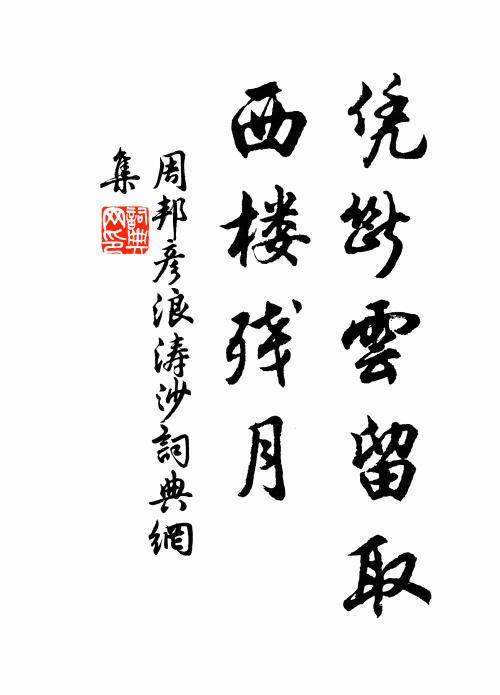 凭断雲留取
西楼残月
周邦彦浪涛沙詞典網
集
詞典
网印